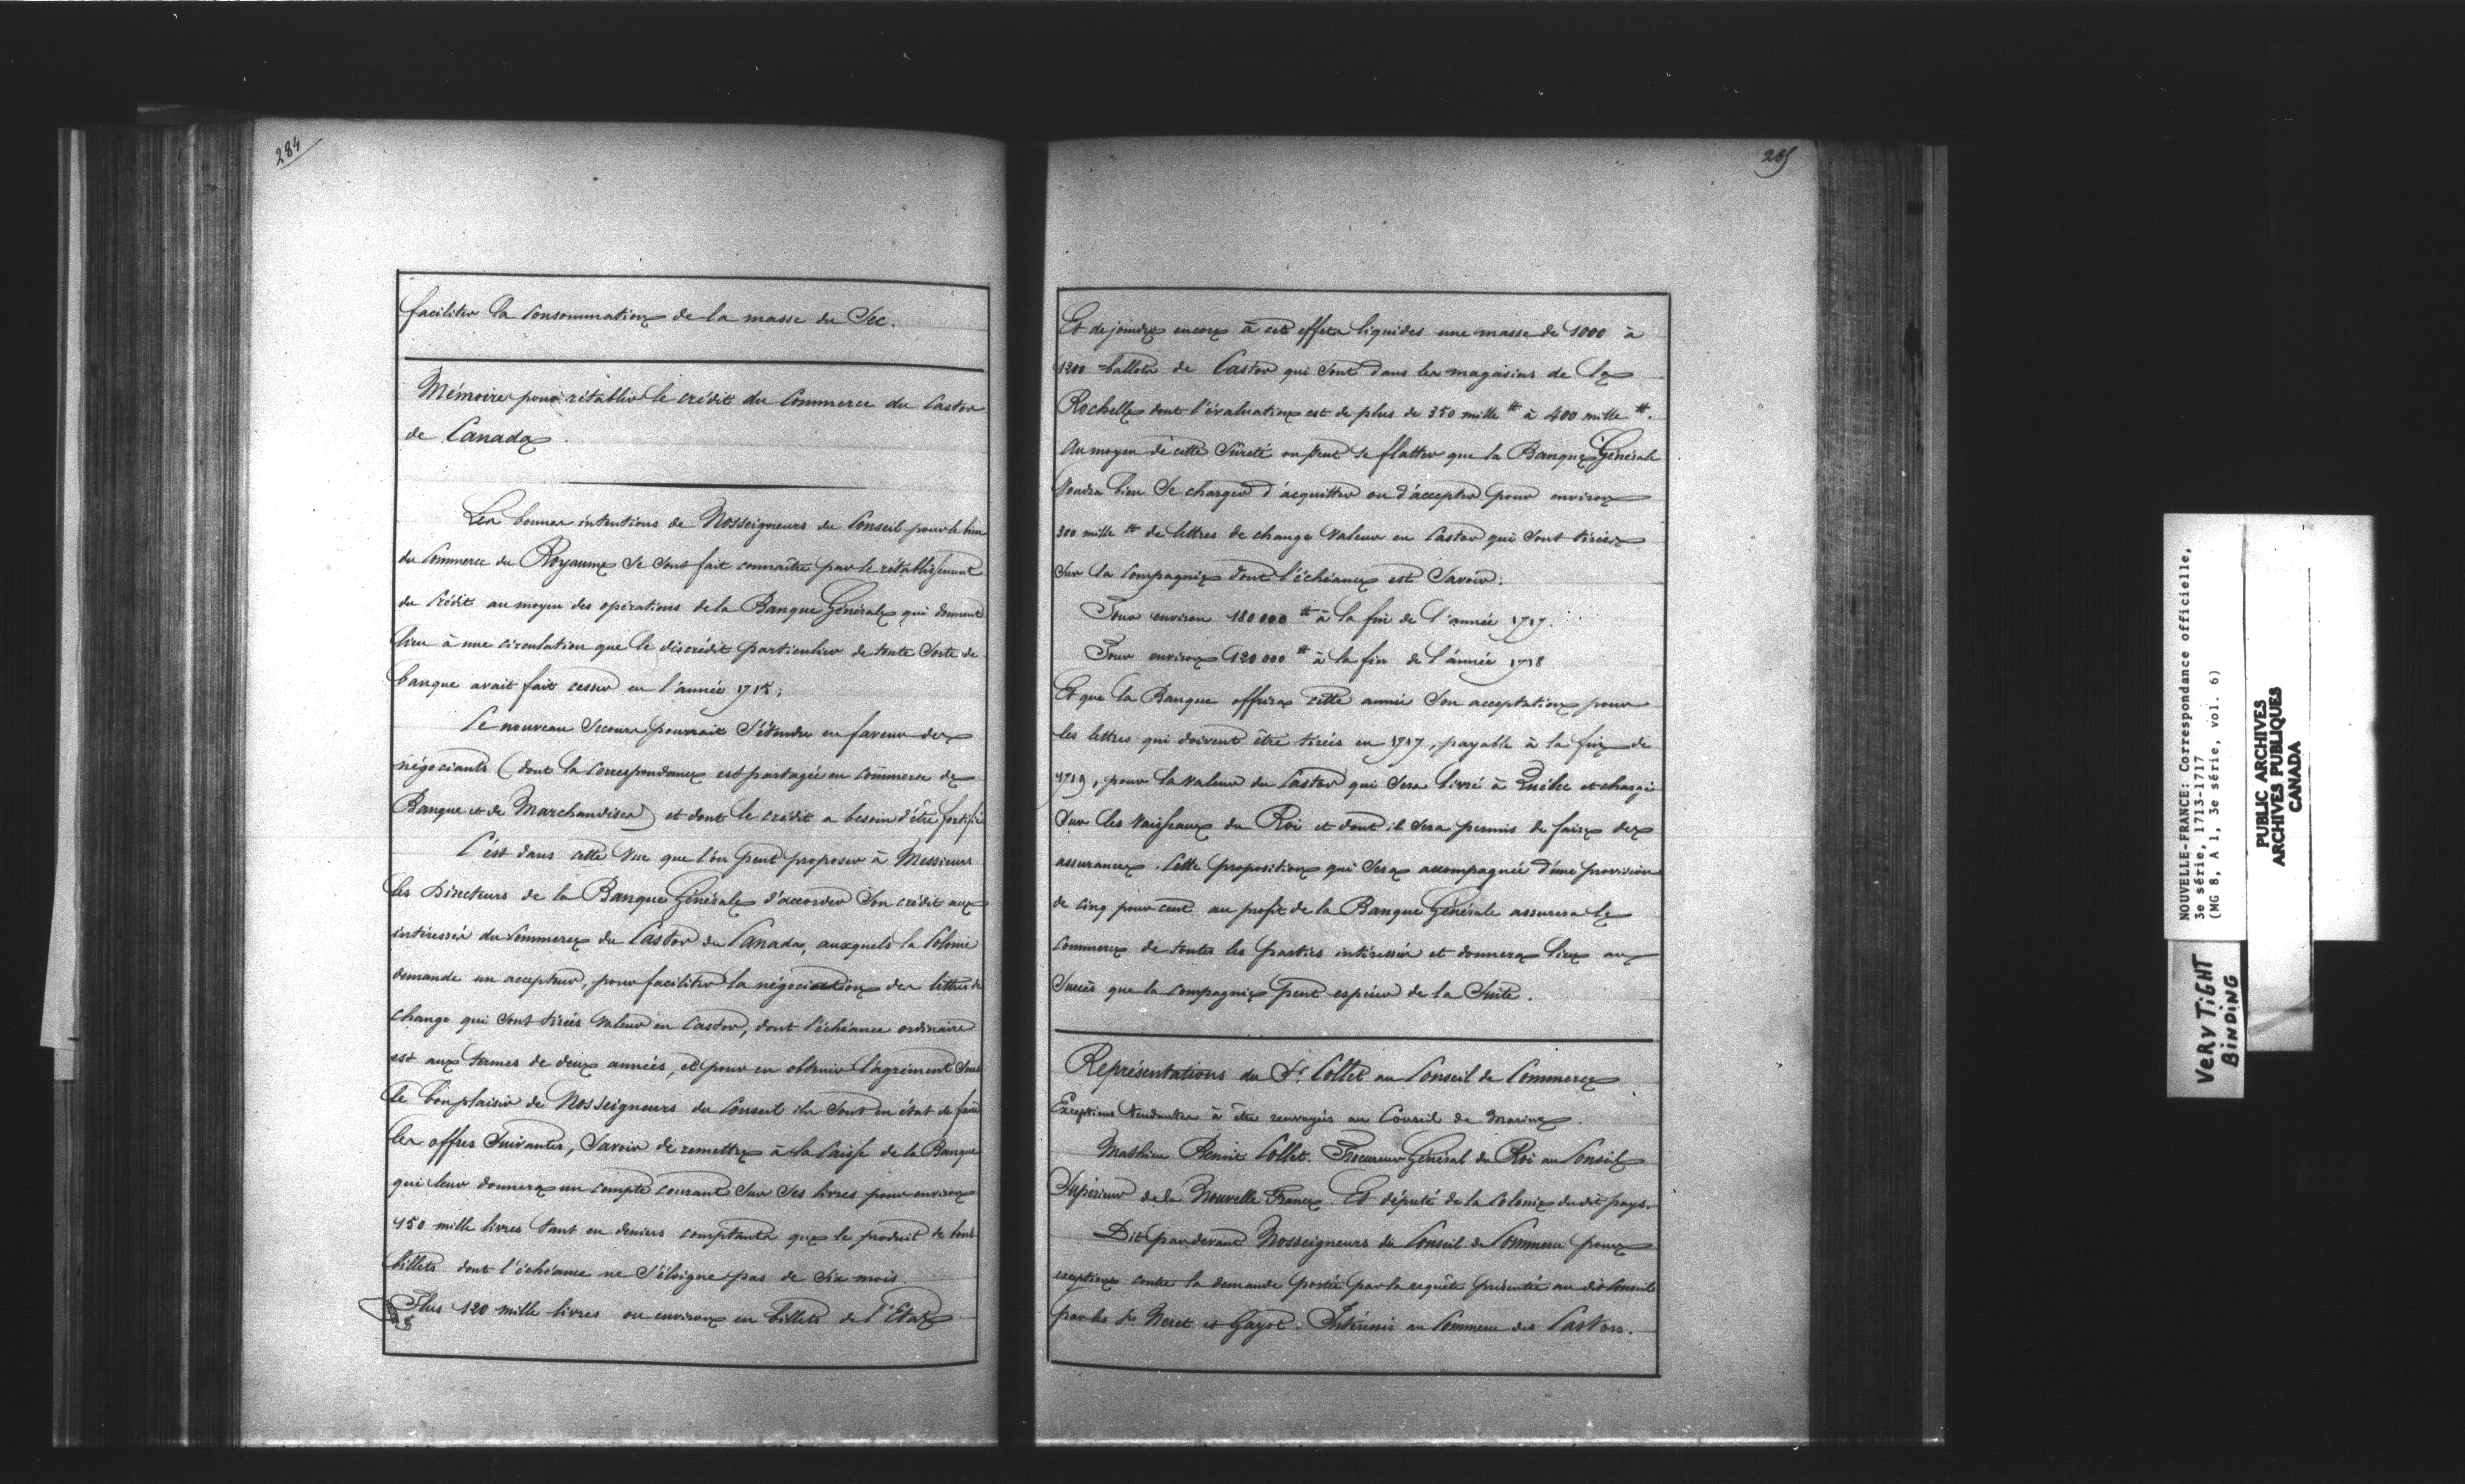 284
faciliter la consommation de la masse du Sec.
Mémoire pour rétablir le crédit du Commerce du Castor
de Canada.
Les bonnes intentions de Nosseigneurs du Conseil pour le bien
du Commerce du Royaume se sont fait connaître par le rétablissement
du Crédit au moyen des opérations de la Banque Générale qui donnent
lieu à une circulation que le discrédit particulier de toute Sorte de
banque avait fait cesser en l'année 1715;
Ce nouveau Secours pourrait S'étendre en faveur des
négociants (dont la Correspondance est partagée en Commerce de
Banque et de Marchandises) et dont le crédit a besoin d'être fortifié
C'est dans cette Vue que l'on peut proposer à Messieurs
les Directeurs de la Banque Générale d'accorder Son crédit aux
intéressés du Commerce du Castor du Canada, auxquels la Colonie
demande un accepteur, pour faciliter la négociation des lettres de
change qui Sont tirées Valeur en Castor, dont l'échéance ordinaire
est aux termes de deux années, et pour en obtenir l'agrément Sous
le bon plaisir de Nosseigneurs du Conseil ils Sont en état de faire
les offres Suivantes, Savoir de remettre à la Caisse de la Banque
qui leur donnera un compte courant Sur Ses livres pour environ
150 mille livres tant en deniers comptants que le produit de tous
billets dont l'échéance ne S'éloigne pas de Six mois.
Plus 120 mille livres ou environ en billets de l'Etat
285
Et de joindre encore à ces effets liquides une masse de 1000 à
1200 ballots de Castor qui Sont dans les magasins de La
Rochelle dont l'évaluation est de plus de 350 mille ₶ à 400 mille ₶.
Au moyen de cette Sûreté on peut se flatter que la Banque Générale
Voudra bien Se charger d'acquitter ou d'accepter pour environ
300 mille ₶ de lettres de change Valeur en Castor qui Sont tirées
Sur la Compagnie dont l'échéance est Savoir:
Pour environ 180000 ₶ à la fin de l'année 1717.
Pour environ 120000 ₶ à la fin de l'année 1718
Et que la Banque offrira cette année Son acceptation pour
les lettres qui doivent être tirées en 1717, payable à la fin de
1719, pour la Valeur du Castor qui Sera livré à Québec et chargé
Sur les Vaisseaux du Roi et dont il Sera permis de faire des
assurances. Cette proposition qui Sera accompagnée d'une provision
de cinq pour cent au profit de la Banque Générale assurera le
Commerce de toutes les parties intéressées et donnera lieu au
Succès que la Compagnie peut espérer de la Suite.
Représentations du Sr. Collet au Conseil de Commerce
Exceptions tendantes à être renvoyés au Conseil de Marine.
Mathieu Benoit Collet. Procureur Général du Roi au Conseil
Supérieur de la Nouvelle France. Et député de la Colonie du dit pays.
Dit par devant Nosseigneurs du Conseil de Commerce pour
exceptions contre la demande portée par la requête présentée au dit Conseil
par les Srs Neret et Gayot. Intéressés au Commerce des Castors.
NOUVELLE-FRANCE: Correspondance officielle,
3e série, 1713-1717
(MG 8, A 1, 3e série, vol. 6)
PUBLIC ARCHIVES
ARCHIVES PUBLIQUES
CANADA
VERY TIGHT
BINDING